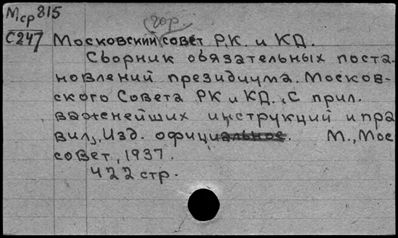 Мср 815
гор.
С247 Московский совет Р.К. и КД.
Сборник обязательных поста-
новлений президиума. Москов-
ского Совета РК и КД., С прил.
важнейших инструкций и пра
вил, Изд. официальное. М., Мос
совет, 1937.
422 стр.